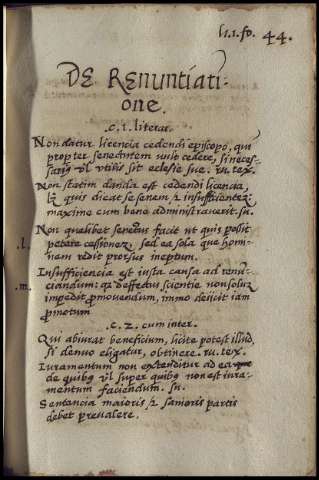 li.i.fo. 44.
DE Renuntiati-
one.
.c. 1. literar.
Non datur licencia cedendi episcopo, qui
propter senectutem vult cedere, si neces-
sariꝰ vl' vtilis sit eclesie sue. ru. tex.
Non statim danda est cedendi licencia,
lꝫ quis dicat se senem, et insufficientem:
maxime cum bene administraverit. su.
Non quelibet senectus facit ut quis possit
.l. petere cessionem, sed ea sola que homi-
nem redit prorsus ineptum.
Insufficiencia est iusta causa ad renū-
.m. ciandum: qꝫ deffectus scientie non solum
impedit promovendum, immo deiicit iam
promotum
.c. 2. cum inter.
Qui abiurat beneficium, licite potest illud,
si denuo eligatur, obtinere. ru. tex.
Iuramentum non extenditur ad ea
de quibꝰ vl' super quibꝰ non est iura-
mentum faciendum. su.
Sentencia maioris et sanioris partis
debet prevalere.